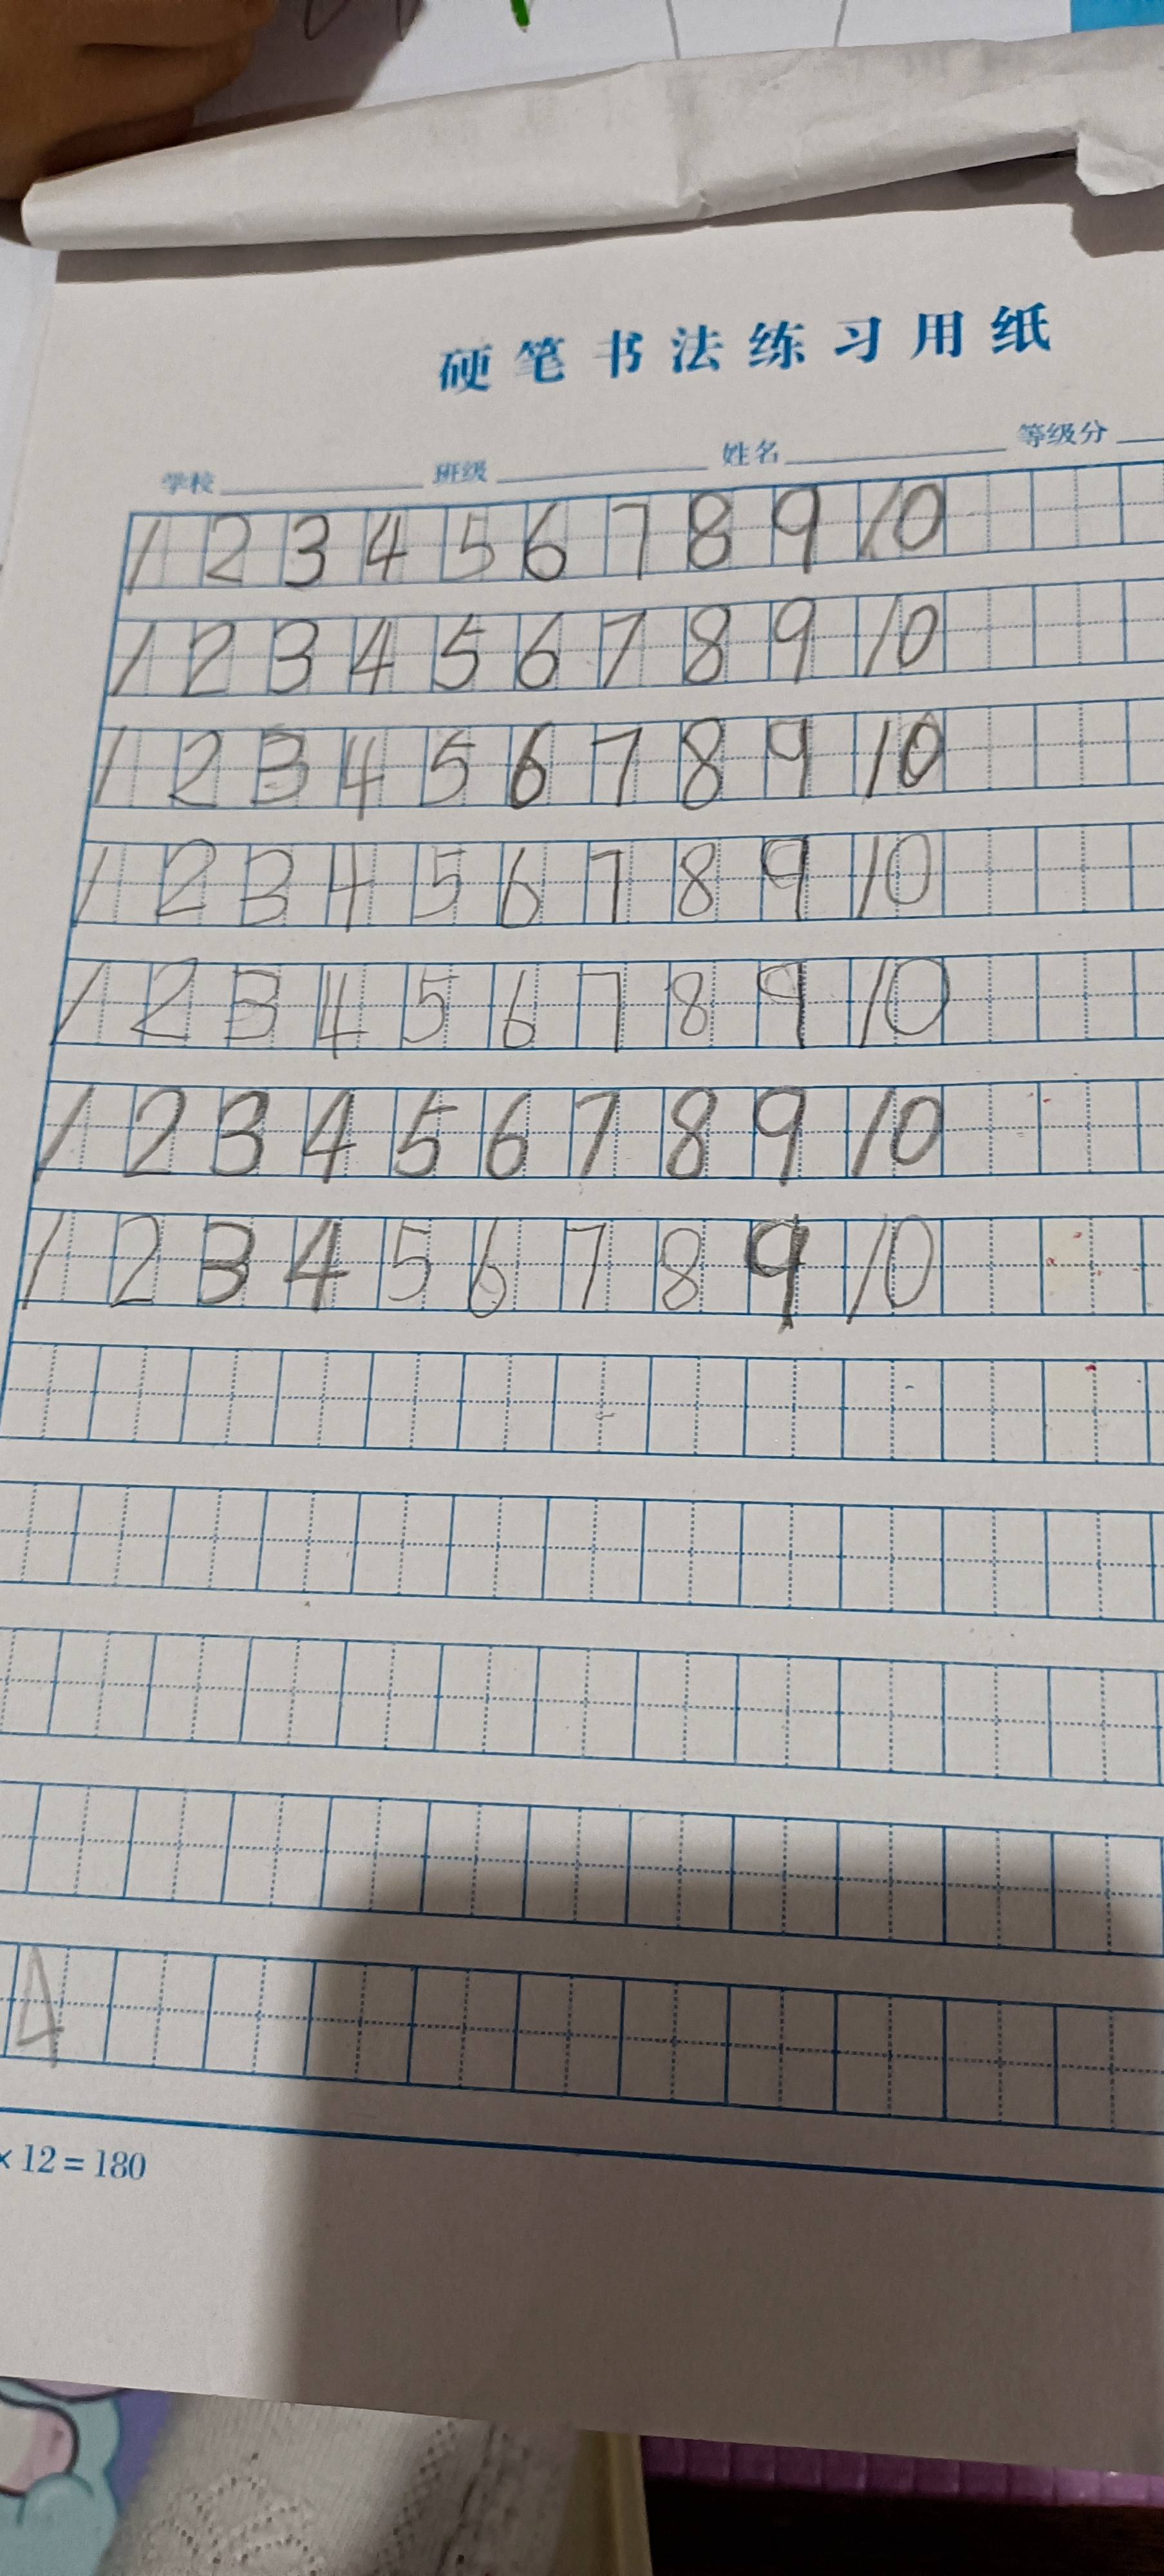 硬笔书法练习用纸
学校 班级 姓名 等级分
1 2 3 4 5 6 7 8 9 10
1 2 3 4 5 6 7 8 9 10
1 2 3 4 5 6 7 8 9 10
1 2 3 4 5 6 7 8 9 10
1 2 3 4 5 6 7 8 9 10
1 2 3 4 5 6 7 8 9 10
1 2 3 4 5 6 7 8 9 10
4
× 12 = 180